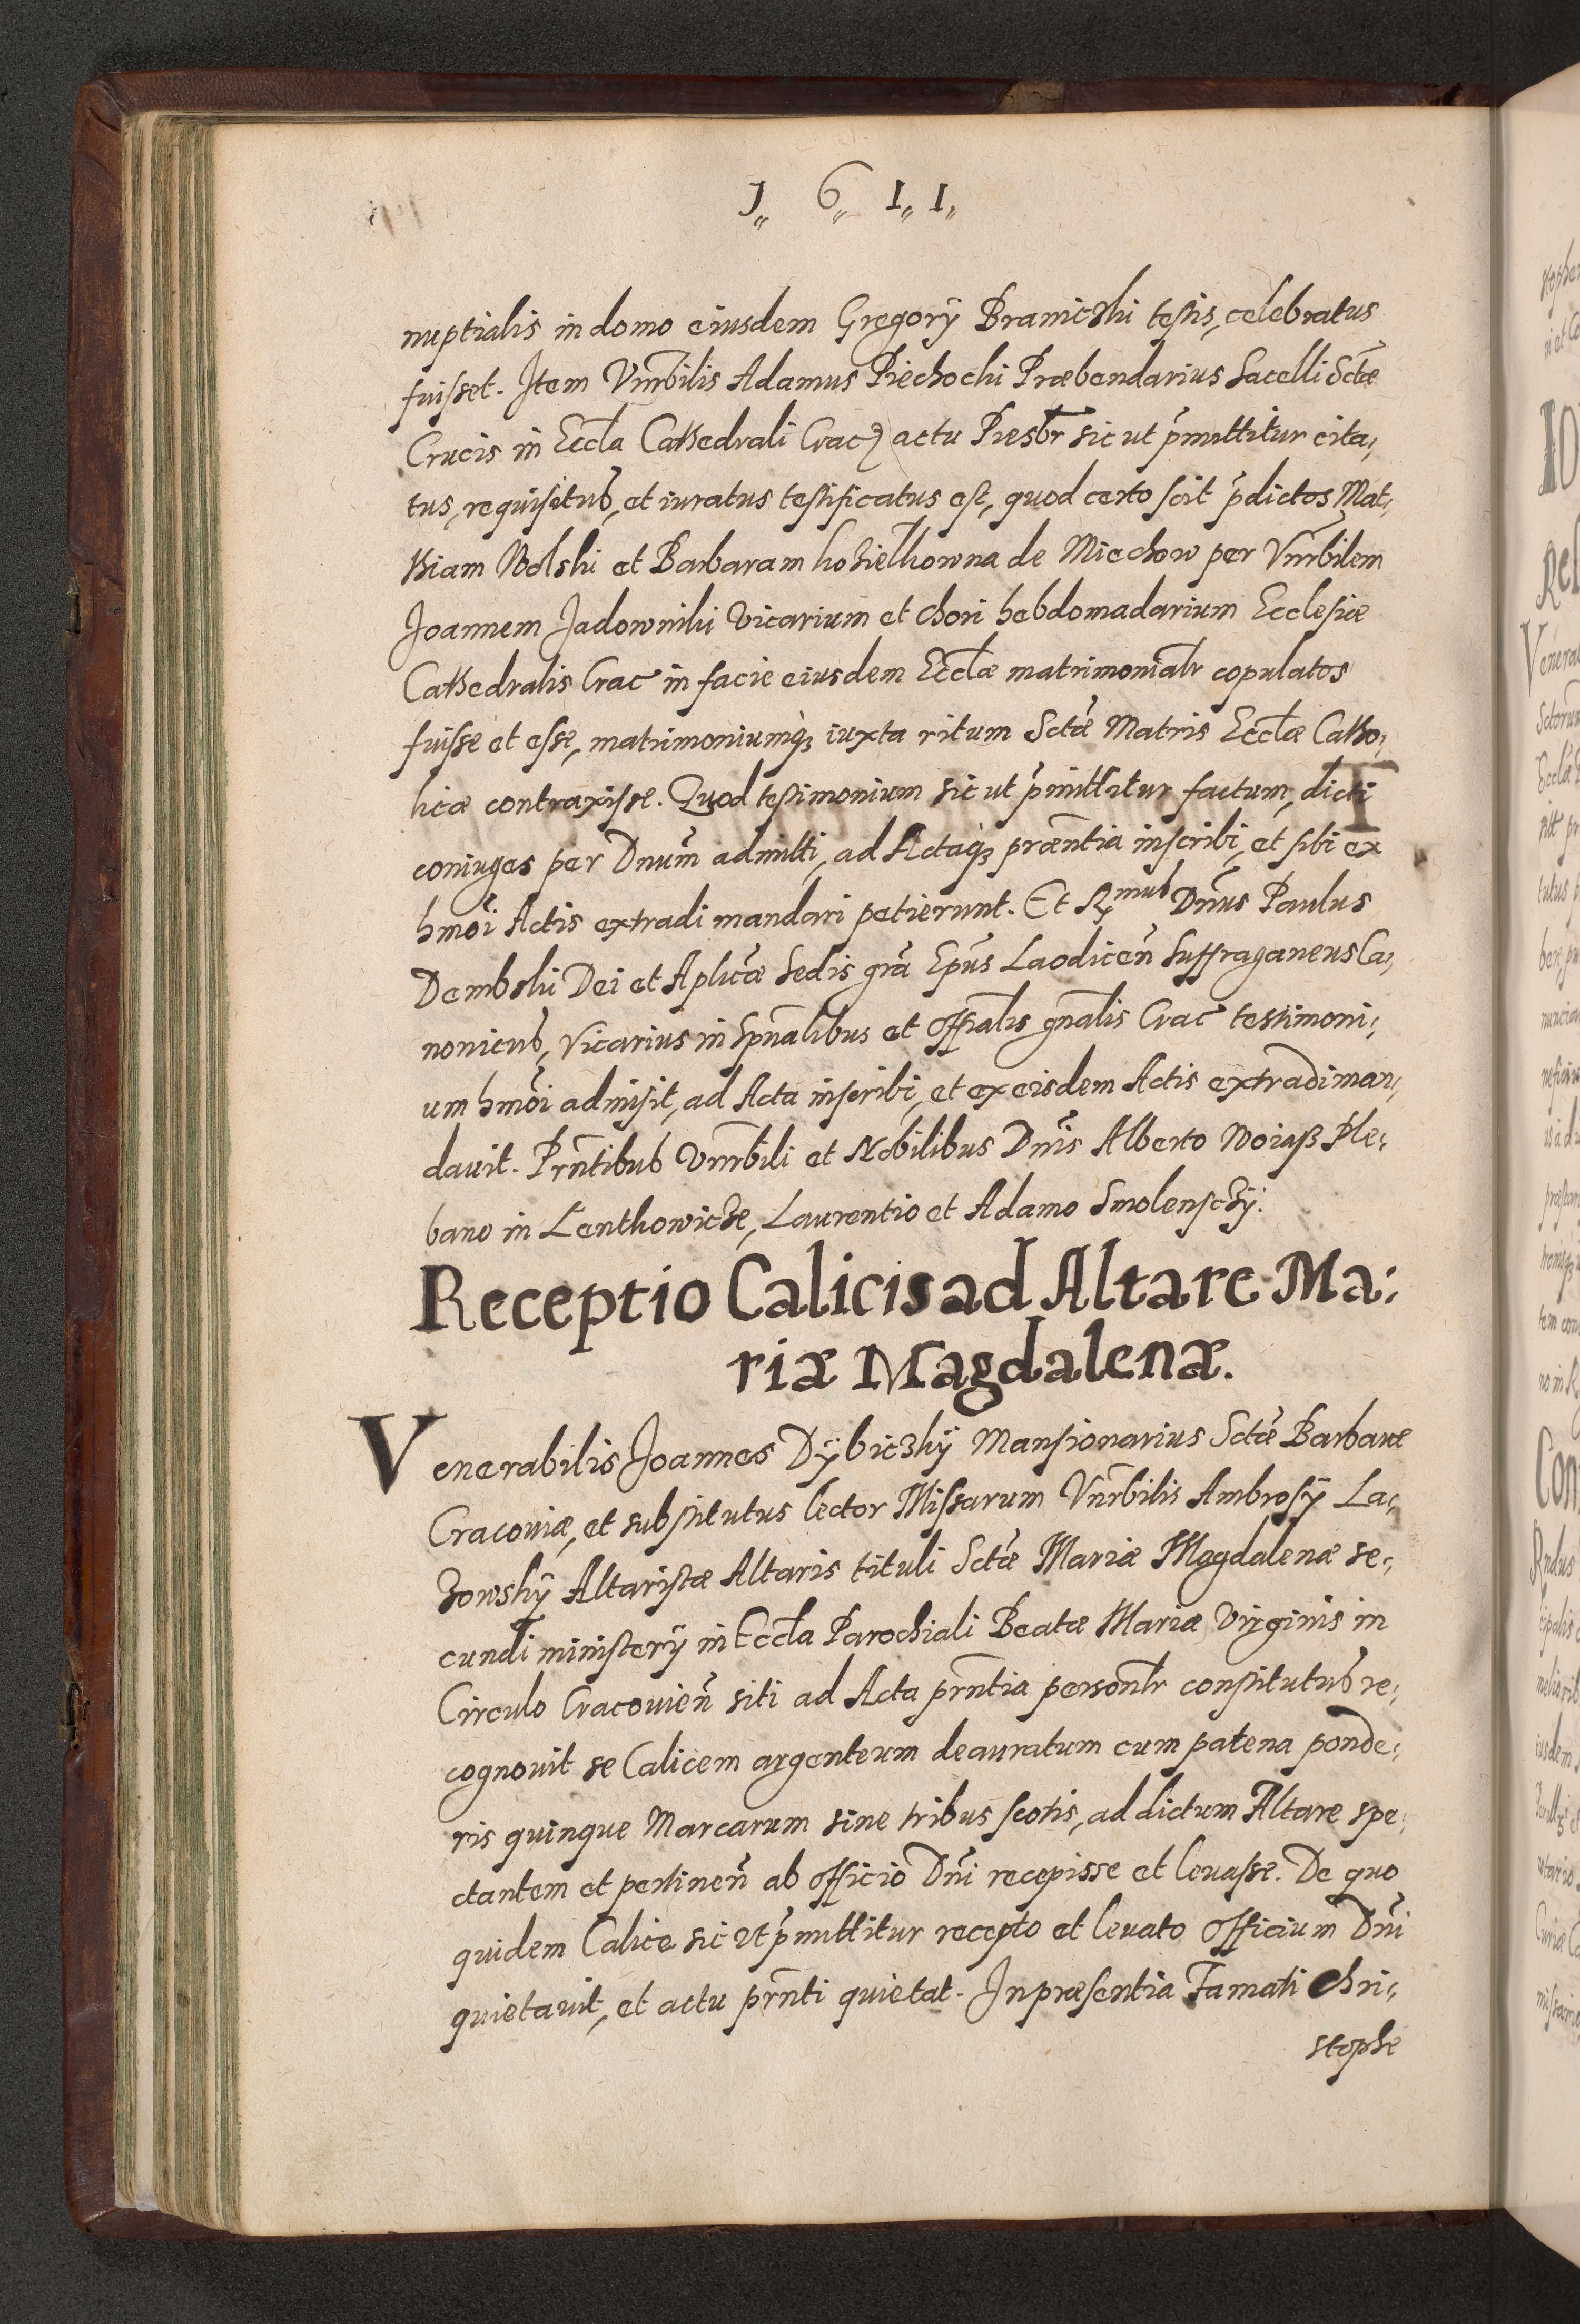 J„ 6„ I„ I„
nuptialis in domo eiusdem Gregorÿ Branicзki testis, celebratus
fuisset. Item Vnrbilis Adamus Piechocki Præbendarius Sacelli Sctæ
Crucis in Eccla Cathedrali Crac) actu Presbr sic ut p̃mittitur cita„
tus, requisitus, et iuratus testificatus est, quod certo scit p̃dictos Mat„
thiam Wolski et Barbaram koзielkowna de Miechow per Vnrbilem
Joannem Jadowniki Vicarium et chori hebdomadarium Ecclesiæ
Cathedralis Crac in facie eiusdem Ecclæ matrimonialr copulatos
fuisse et esse, matrimoniumqꝫ iuxta ritum Sctæ Matris Ecclæ Catho„
licæ contraxisse. Quod testimonium sic ut p̃mittitur factum, dicti
coniuges per Dnum̃ admitti, ad Actaqꝫ præntia inscribi, et sibi ex
hmõi Actis extradi mandari petierunt. Et Rmus Dñus Paulus
Dembski Dei et Aplicæ Sedis grã Epũs Laodiceñ Suffraganeus Ca„
nonicus, Vicarius in Spũalibus et Offialis gñalis Crac testimoni„
um hmõi admisit, ad Acta inscribi, et ex eisdem Actis extradi man„
dauit. Prñtibus Vnrbili et Nobilibus Dñis Alberto Woiaß Ple„
bano in Lenthowicзe, Laurentio et Adamo Smolensсzÿ.
Receptio Calicis ad Altare Ma:
riæ Magdalenæ.
Venerabilis Joannes Dÿbicзkÿ Mansionarius Sctæ Barbaræ
Cracouiæ, et substitutus lector Missarum Vnrbilis Ambrosÿ La„
зowskÿ Altaristæ Altaris tituli Sctæ Mariæ Magdalenæ se„
cundi ministerÿ in Eccla Parochiali Beatæ Mariæ Virginis in
Circulo Cracouieñ siti ad Acta prñtia personlr constitutus re„
cognouit se Calicem argenteum deauratum cum patena ponde„
ris quinque Marcarum sine tribus scotis, ad dictum Altare spe„
ctantem et pertineñ ab officio Dñi recepisse et leuasse. De quo
quidem Calice sic ut p̃mittitur recepto et leuato Officium Dñi
quietauit, et actu prñti quietat. In præsentia Famati Chri„
stophe